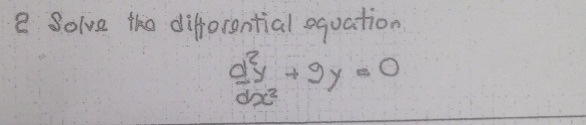 2 Solve the differential equation
d²y/dx² + 9y = 0